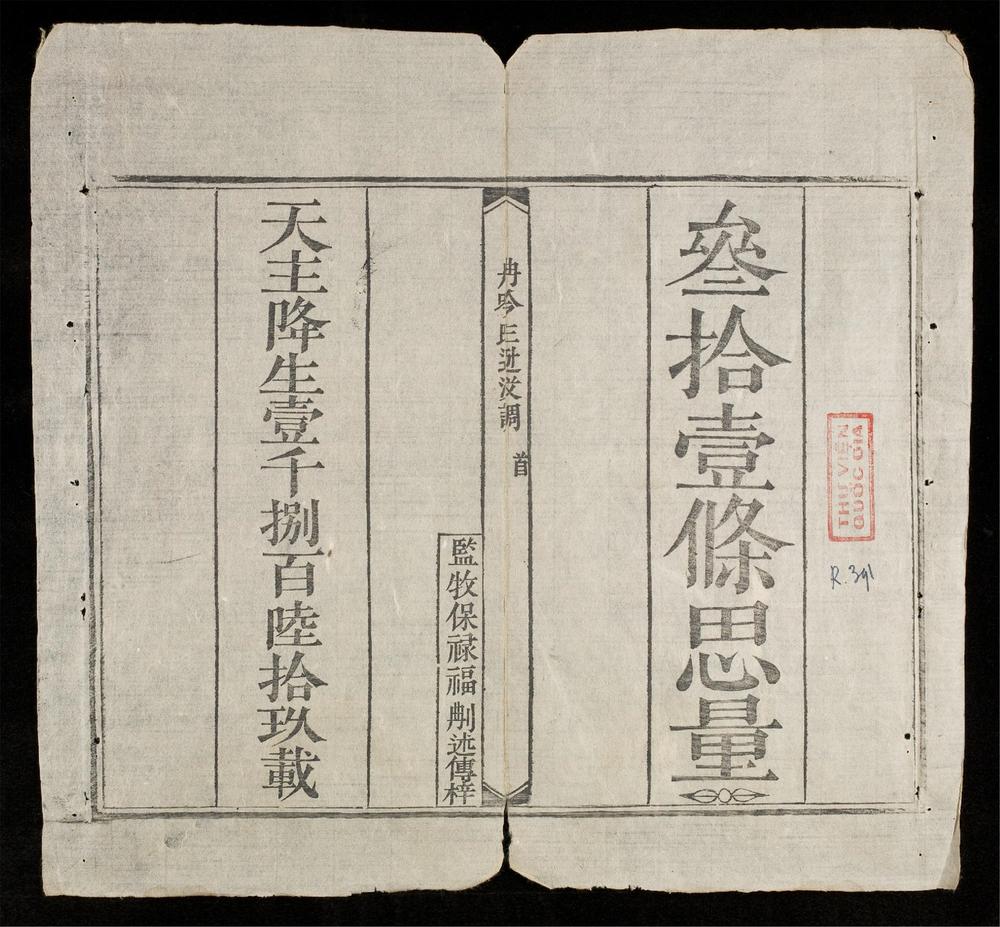 THƯ VIỆN
QUỐC GIA
R.391
叄拾壹條思量
冉吟沒調 首
監牧保禄福刪述傳梓
天主降生壹千捌百陸拾玖載